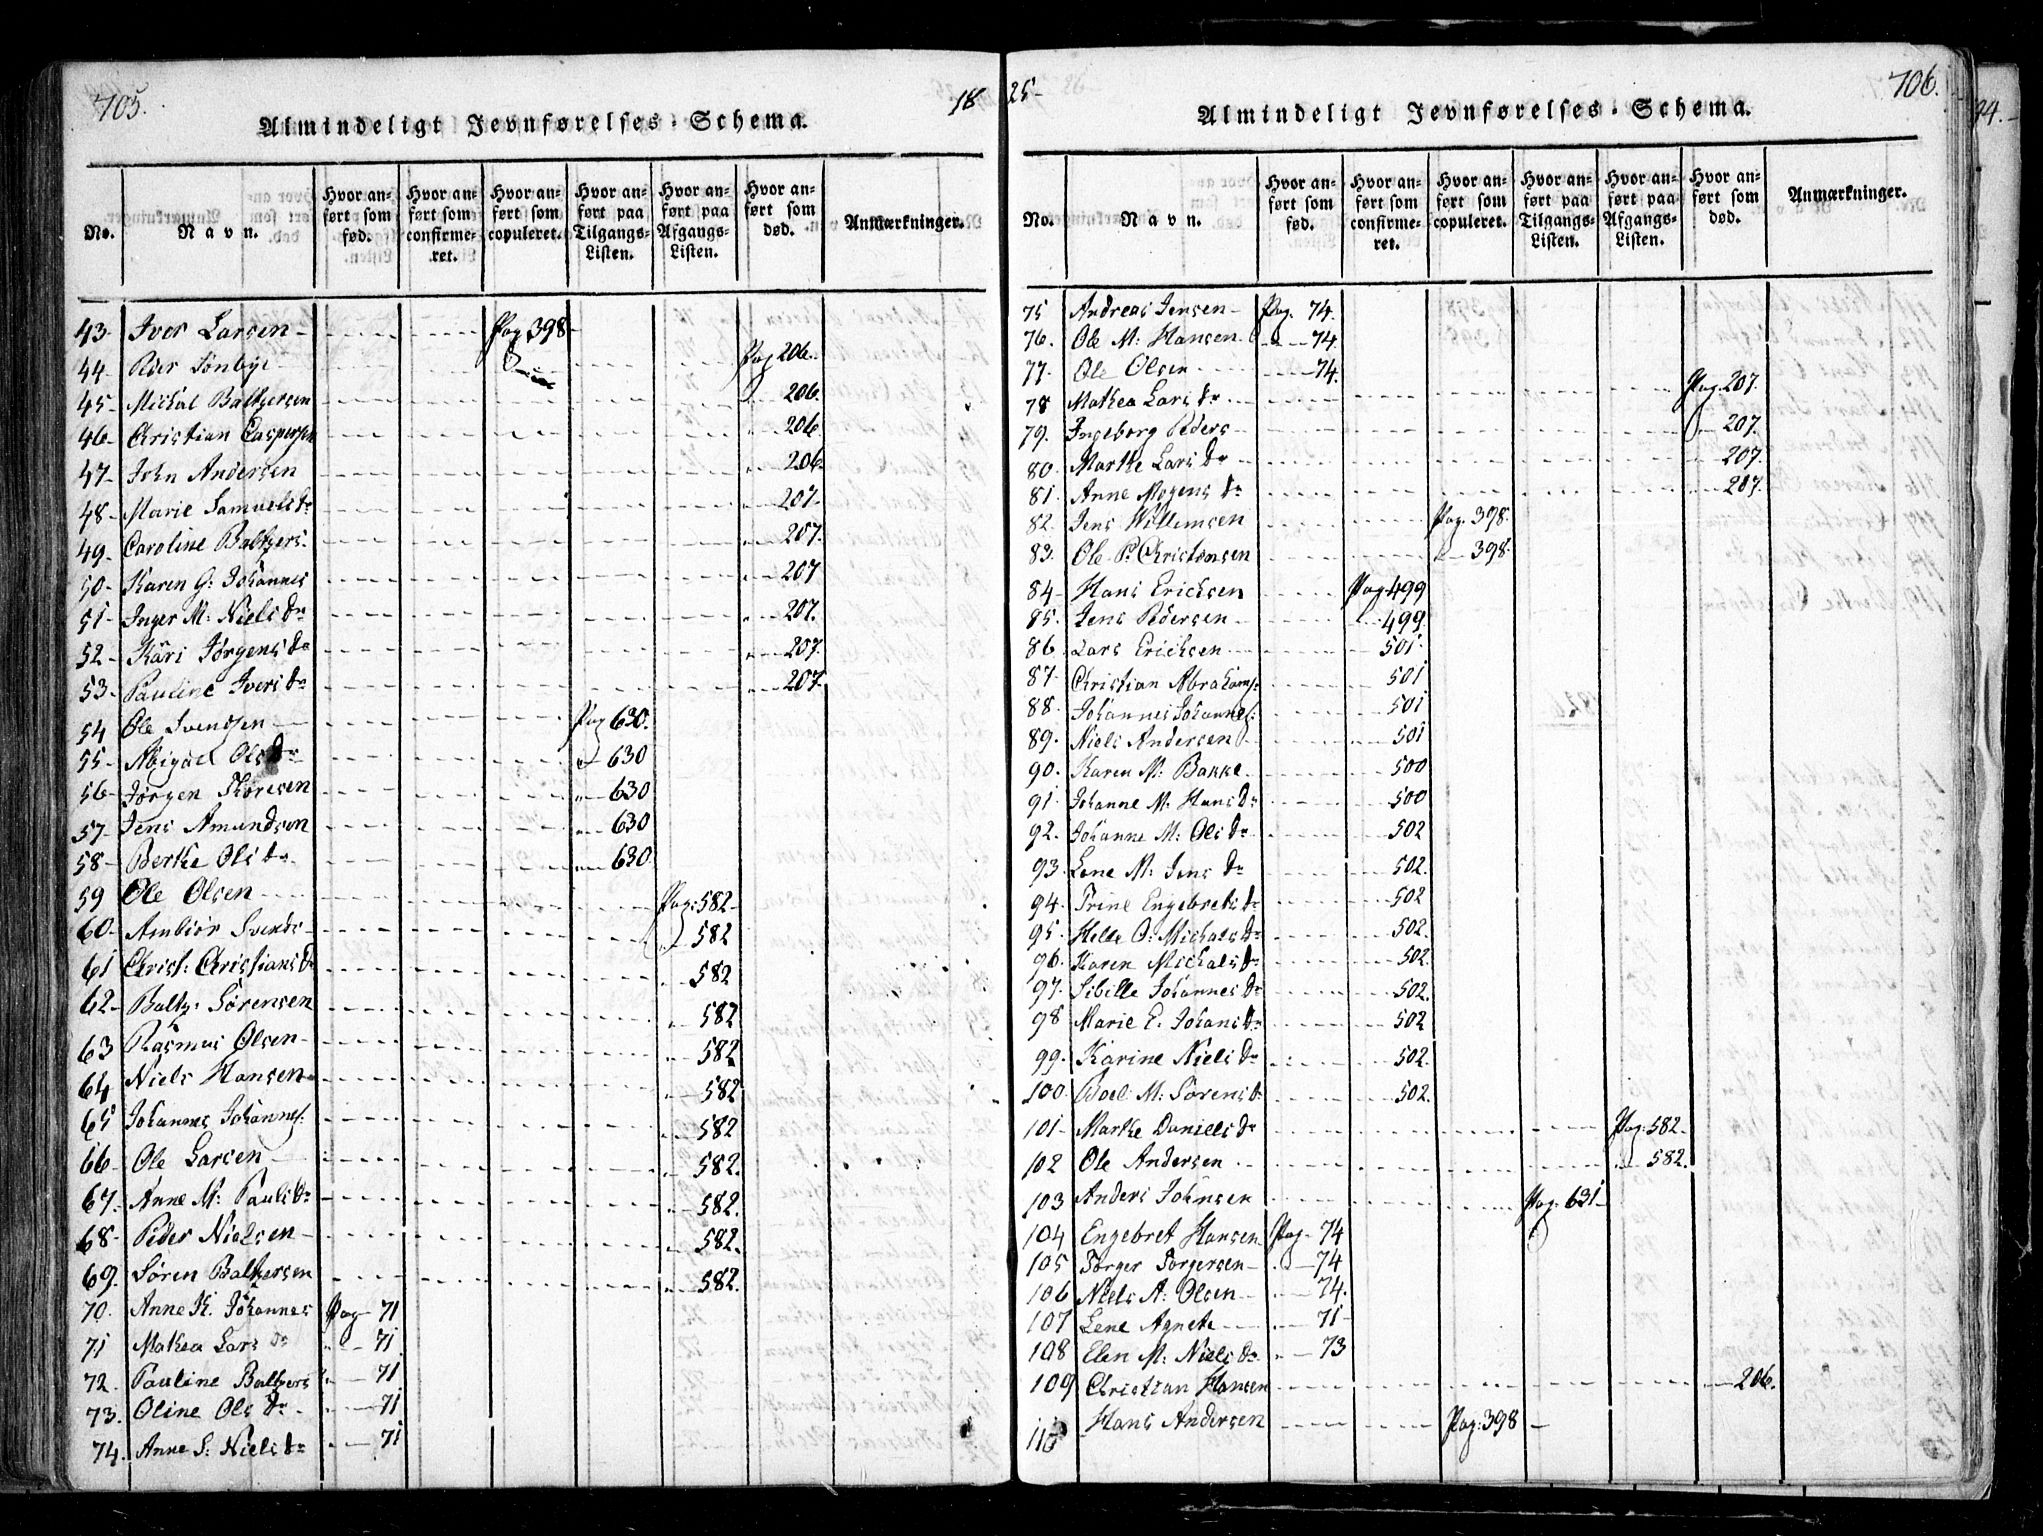 705.
18
Almindeligt Jevnførelses-Schema.
No.
Navn.
Hvor anført som fød.
Hvor anført som confirmeret.
Hvor anført som copuleret.
Hvor anført paa Tilgangs-Listen.
Hvor anført paa Afgangs-Listen.
Hvor anført som død.
Anmærkninger.
43 Iver Larsen Pag 398
44 Peder Sönbye Pag 206.
45 Michal Baltzersen 206.
46 Christian Caspersen 206
47 John Andersen 206
48 Marie Samuelsdr 207
49 Caroline Baltzers 207.
50 Karen G: Johannes 207
51 Inger M: Nielsdr 207.
52 Kari Jörgensdr 207.
53 Pauline Iversdr 207
54 Ole Svendsen Pag 630.
55 Abigael Olsdr 630
56 Jörgen Thoresen 630
57 Jens Amundsen 630
58 Berthe Olsdr 630
59 Ole Olsen Pag: 582
60 Ambiör Svends 582
61 Christ: Christiansdr 582
62 Baltz: Sörensen 582
63 Rasmus Olsen 582
64 Niels Hansen 582
65 Johannes Johannes: 582
66 Ole Larsen 582.
67 Anne M: Paulsdr 582.
68 Peder Nielsen 582.
69. Sören Baltzersen 582.
70. Anne K. Johannes Pag 71
71 Mathea Lars dr 71
72. Pauline Baltzers 71
73. Oline Olsdr 71
74. Anne S: Nielsdr 71
25
706.
Almindeligt Jevnførelses-Schema.
No.
Navn.
Hvor anført som fød.
Hvor anført som confirmeret.
Hvor anført som copuleret.
Hvor anført paa Tilgangs-Listen.
Hvor anført paa Afgangs-Listen.
Hvor anført som død.
Anmærkninger.
75 Andreas Jensen Pag. 74.
76. Ole M: Hansen 74.
77. Ole Olsen 74.
78 Mathea Larsdr Pag. 207.
79. Ingeborg Peders 207.
80. Marthe Larsdr 207.
81. Anne Mogensdr 207.
82. Jens Willumsen Pag. 398.
83. Ole P. Christensen 398.
84 Hans Erichsen Pag 499
85. Jens Pedersen 499.
86 Lars Erichsen 501
87 Christian Abrahams: 501
88. Johannes Johannes: 501
89. Niels Andersen 501
90. Karen M: Bakke 500
91 Johanne M. Hansdr 500
92. Johanne M: Olsdr 502
93. Lene M: Jens dr 502.
94. Trine Engebretsdr 502
95. Helle O: Michalsdr 502.
96. Karen Michalsdr 502.
97. Sibille Johannesdr 502.
98 Marie E. Johansdr 502
99. Karine Nielsdr 502.
100. Boel M: Sörensdr 502.
101 Marthe Danielsdr Pag: 582
102 Ole Andersen 582.
103 Anders Johnsen Pag. 631
104 Engebret Hansen Pag. 74
105 Torger Torgersen 74
106 Niels A: Olsen 74.
107 Lene Agnethe 71
108 Elen M: Nielsdr 73
109 Christian Hansen 206.
110 Hans Andersen Pag: 398